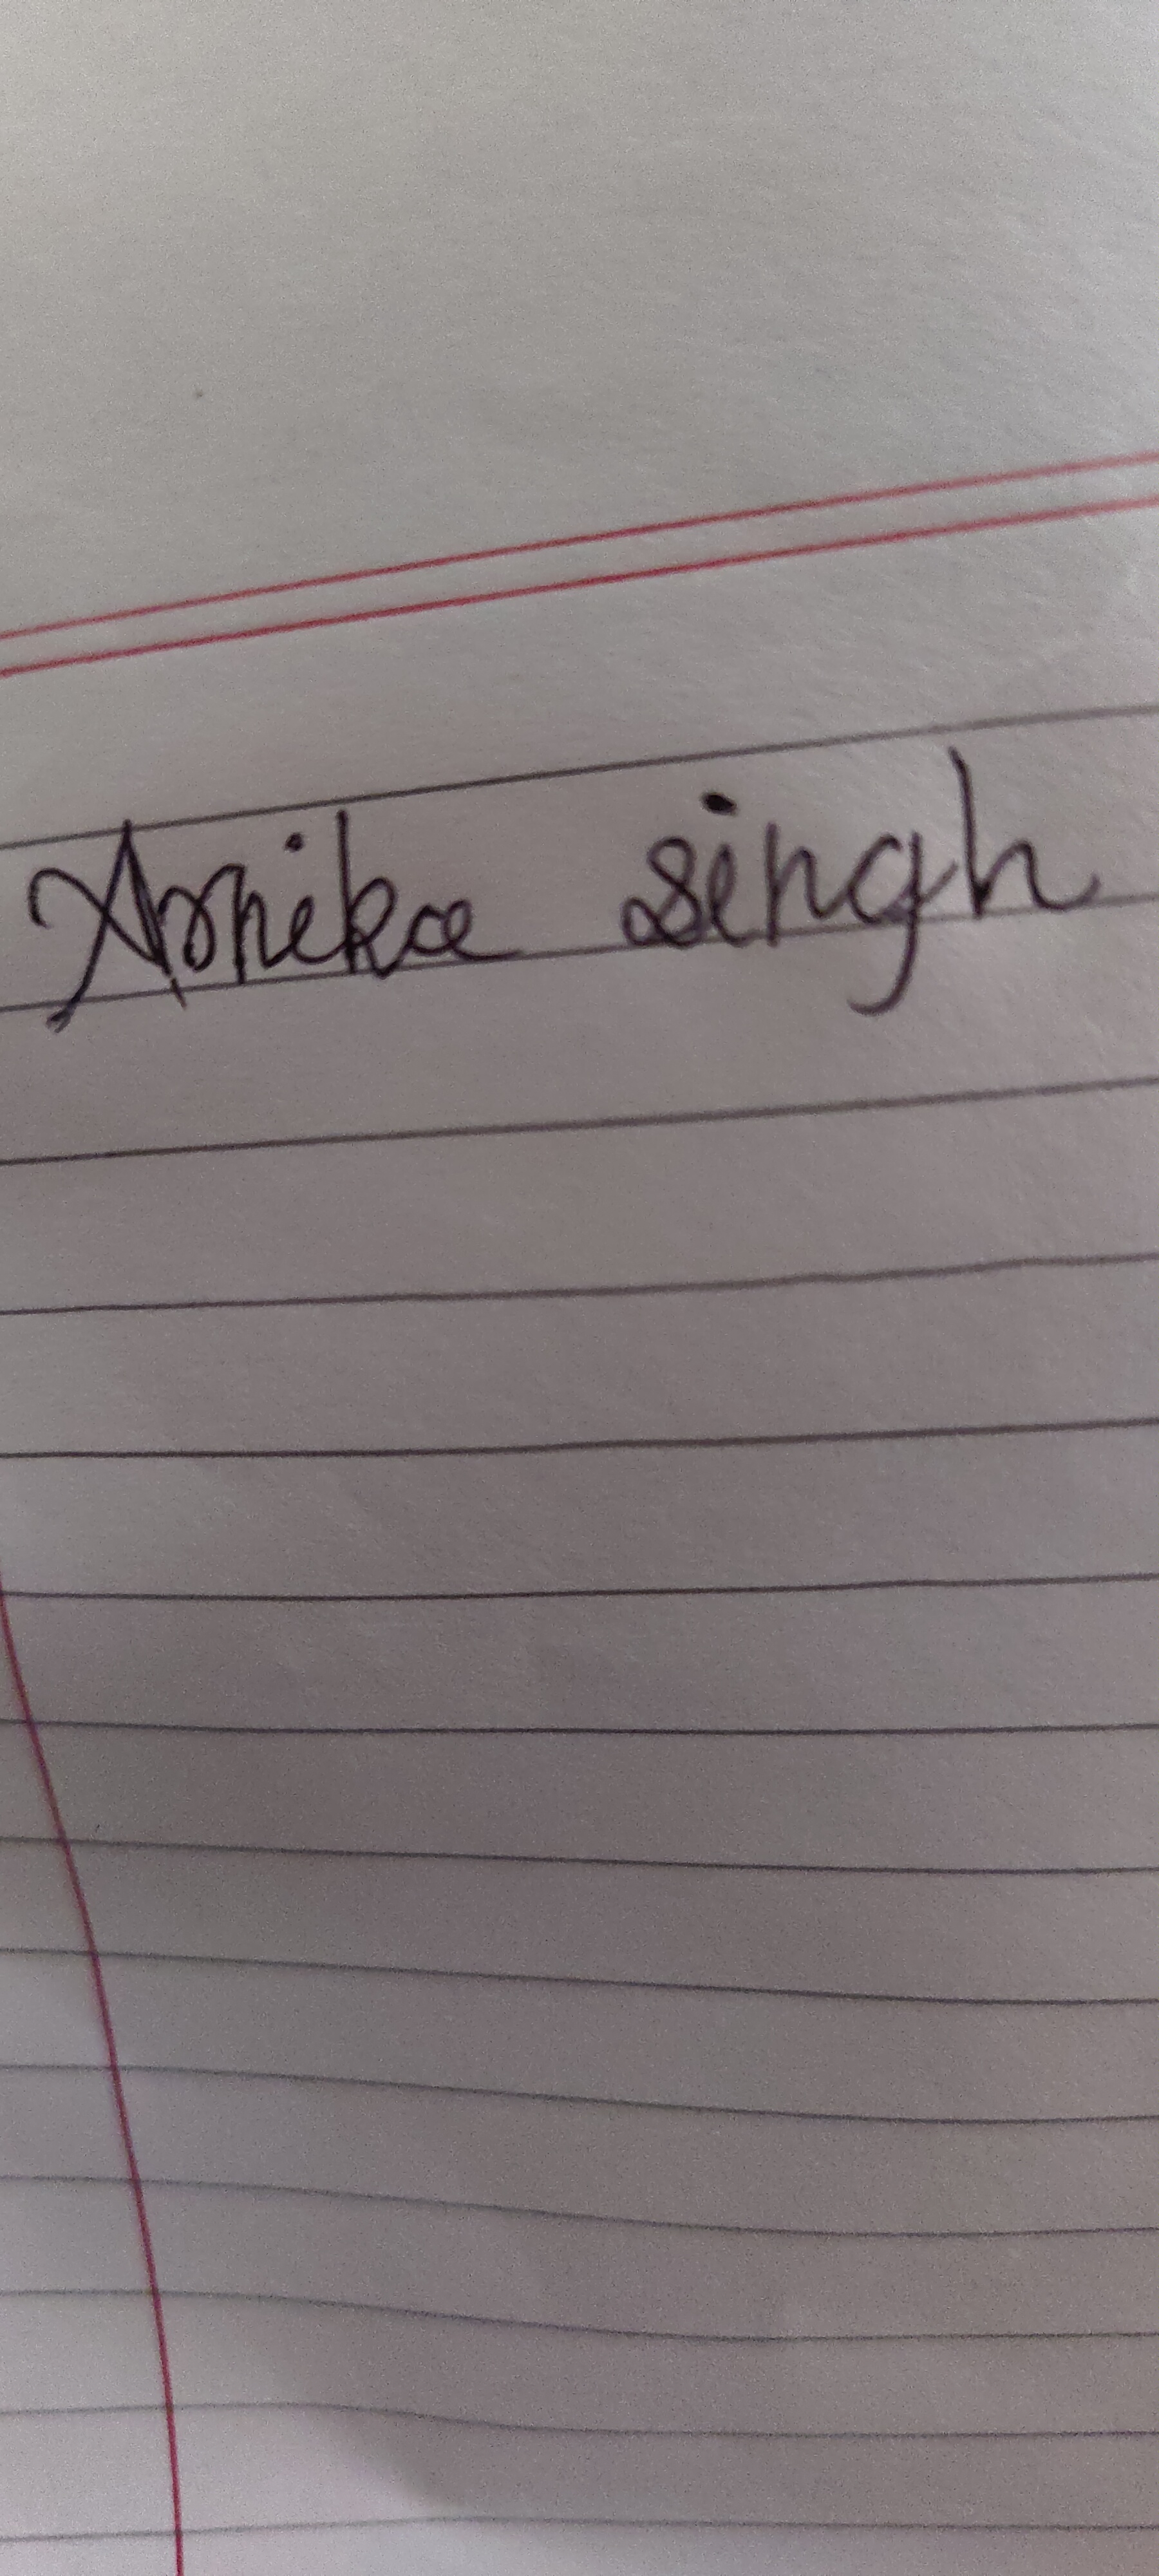 Arnika singh